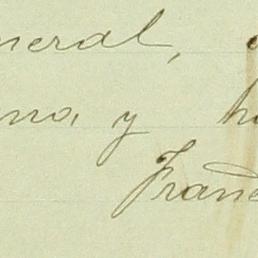 neral,
na, y h
Franc